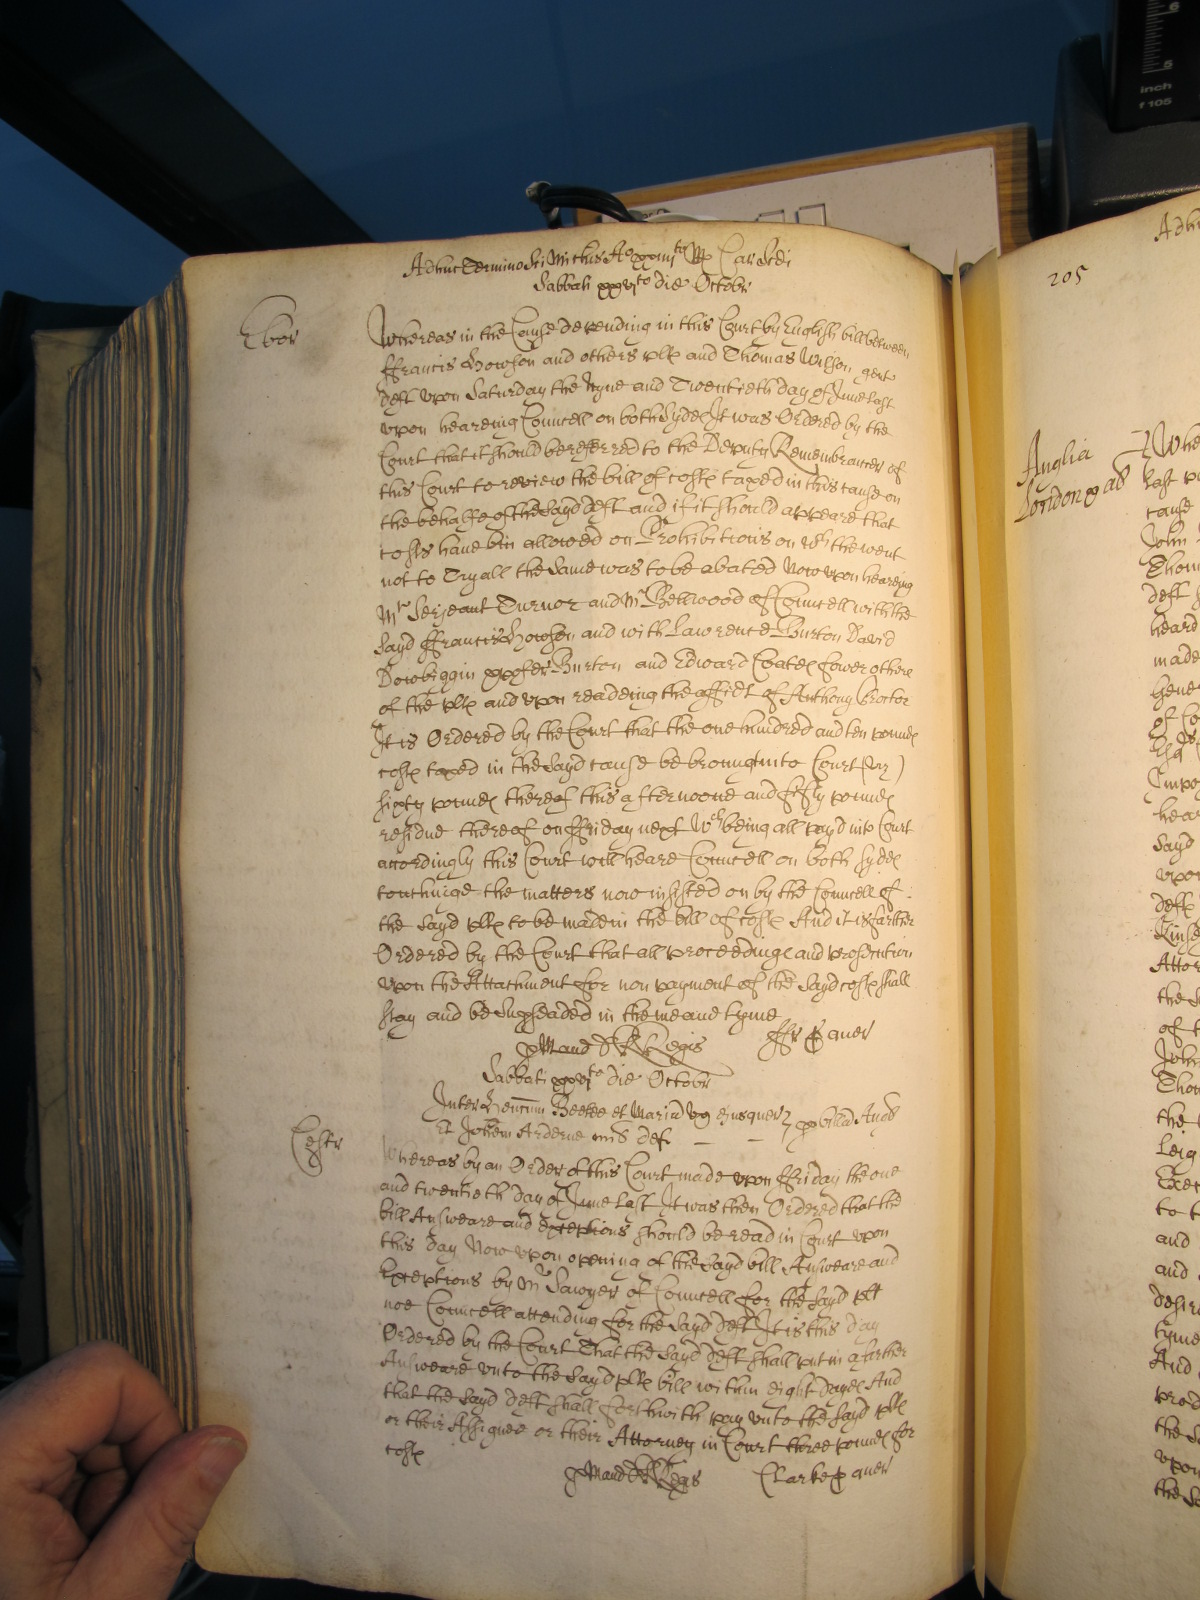 Adhuc Termino Sci Michis Ao xxiiijto R Car Scdi
Sabbati xxvjto die Octobr
Ebor
Whereas in the Cause depending in this Court by English bill betweene
ffrancis Howson and others plts and Thomas Wilson gent
deft upon Saturday the Nyne and Twentieth day of June last
upon heareing Councell on both sydes It was Ordered by the
Court that it should be referred to the Deputy Remembrancer of
this Court to review the bill of costs taxed in this cause on
the behalfe of the sayd deft and if it should appeare that
costs have bin allowed on Prohibitions on wch they went
not to Tryall the same was to be abated Now upon heareing
Mr Serjeant Turnor and Mr Bellwood of Councell with the
sayd ffrancis Howson and with Lawrence Burton David
Dowbiggin xpofer Burton and Edward Coates fower others
of the plts and upon readeing the affidt of Anthony Proctor
It is Ordered by the Court that the one hundred and ten pounds
costs taxed in the sayd cause be brought into Court (viz)
sixty pounds thereof this afternoone and fifty pounds
residue thereof on ffriday next Wch being all payd into Court
accordingly this Court will heare Councell on both sydes
touchinge the matters now insisted on by the Councell of
the sayd plts to be made in the bill of costs And it is further
Ordered by the Court that all proceedings and prosecution
upon the Attachment for non payment of the sayd costs shall
stay and be Supseaded in the meane tyme
p Mand Regis
Sabbati xxvjto die Octobr
Inter Henricum et Mariam ux ejusquer p billa Angl
Et Johem Arderne def
Cestr
Whereas by an Order of this Court made upon ffriday the one
and twentieth day of June last It was then Ordered that the
bill Answeare and exceptions should be read in Court upon
this day Now upon opening of the sayd bill Answeare and
Exceptions by Mr Sawyer of Councell for the sayd plt
noe Councell attending for the sayd deft It is this day
Ordered by the Court That the sayd deft shall put in a further
Answeare unto the sayd plts bill within eight dayes And
that the sayd deft shall forthwith pay unto the sayd plts
or their Assignes or their Attorney in Court three pounds for
costs
p Mand Regis Clarke p quer
205
Anglia
London
Adhu
Whe
last
cause
John
Thom
deft
heard
made
Gene
of Co
hear
sayd
upon
deft
Attor
the S
of t
John
Thom
the
Leig
Exce
to t
and
and
desir
tyme
And
prod
the S
upon
the S
inch
f 105
5
6